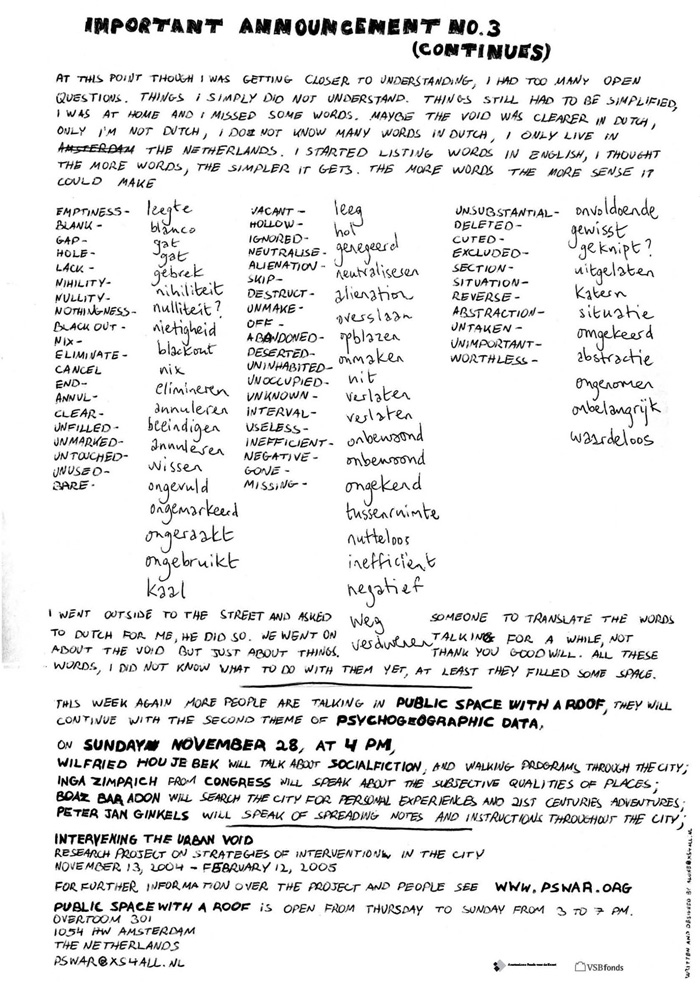 IMPORTANT ANNOUNCEMENT NO.3
(CONTINUES)
AT THIS POINT THOUGH I WAS GETTING CLOSER TO UNDERSTANDING, I HAD TOO MANY OPEN
QUESTIONS. THINGS I SIMPLY DID NOT UNDERSTAND. THINGS STILL HAD TO BE SIMPLIFIED,
I WAS AT HOME AND I MISSED SOME WORDS. MAYBE THE VOID WAS CLEARER IN DUTCH,
ONLY I'M NOT DUTCH, I DO NOT KNOW MANY WORDS IN DUTCH, I ONLY LIVE IN
AMSTERDAM THE NETHERLANDS. I STARTED LISTING WORDS IN ENGLISH, I THOUGHT
THE MORE WORDS, THE SIMPLER IT GETS. THE MORE WORDS THE MORE SENSE IT
COULD MAKE
EMPTINESS-
BLANK-
GAP-
HOLE-
LACK-
NIHILITY-
NULLITY-
NOTHINGNESS-
BLACK OUT-
NIX-
ELIMINATE-
CANCEL
END-
ANNUL-
CLEAR-
UNFILLED-
UNMARKED-
UNTOUCHED-
UNUSED-
BARE-
leegte
blanco
gat
gat
gebrek
nihiliteit
nulliteit?
nietigheid
blackout
nix
elimineren
annuleren
beeindigen
annuleren
wissen
ongevuld
ongemarkeerd
ongeraakt
ongebruikt
kaal
VACANT-
HOLLOW-
IGNORED-
NEUTRALISE-
ALIENATION-
SKIP-
DESTRUCT-
UNMAKE-
OFF-
ABANDONED-
DESERTED-
UNINHABITED-
UNOCCUPIED-
UNKNOWN-
INTERVAL-
USELESS-
INEFFICIENT-
NEGATIVE-
GONE-
MISSING-
leeg
hol
genegeerd
neutraliseren
alienation
overslaan
opblazen
onmaken
uit
verlaten
verlaten
onbewoond
onbewoond
ongekend
tussenruimte
nutteloos
inefficiënt
negatief
weg
verdwenen
UNSUBSTANTIAL-
DELETED-
CUTED-
EXCLUDED-
SECTION-
SITUATION-
REVERSE-
ABSTRACTION-
UNTAKEN-
UNIMPORTANT-
WORTHLESS-
onvoldoende
gewisst
geknipt?
uitgelaten
katern
situatie
omgekeerd
abstractie
ongenomen
onbelangrijk
waardeloos
I WENT OUTSIDE TO THE STREET AND ASKED SOMEONE TO TRANSLATE THE WORDS
TO DUTCH FOR ME, HE DID SO. WE WENT ON TALKING FOR A WHILE, NOT
ABOUT THE VOID BUT JUST ABOUT THINGS. THANK YOU GOODWILL. ALL THESE
WORDS, I DID NOT KNOW WHAT TO DO WITH THEM YET, AT LEAST THEY FILLED SOME SPACE.
THIS WEEK AGAIN MORE PEOPLE ARE TALKING IN PUBLIC SPACE WITH A ROOF, THEY WILL
CONTINUE WITH THE SECOND THEME OF PSYCHOGEOGRAPHIC DATA,
ON SUNDAY NOVEMBER 28, AT 4 PM,
WILFRIED HOU JE BEK WILL TALK ABOUT SOCIALFICTION, AND WALKING PROGRAMS THROUGH THE CITY;
INGA ZIMPRICH FROM CONGRESS WILL SPEAK ABOUT THE SUBJECTIVE QUALITIES OF PLACES;
BOAZ BAR ADON WILL SEARCH THE CITY FOR PERSONAL EXPERIENCES AND 21ST CENTURIES ADVENTURES;
PETER JAN GINKELS WILL SPEAK OF SPREADING NOTES AND INSTRUCTIONS THROUGHOUT THE CITY;
INTERVENING THE URBAN VOID
RESEARCH PROJECT ON STRATEGIES OF INTERVENTIONS IN THE CITY
NOVEMBER 13, 2004 - FEBRUARY 12, 2005
FOR FURTHER INFORMATION OVER THE PROJECT AND PEOPLE SEE WWW.PSWAR.ORG
PUBLIC SPACE WITH A ROOF IS OPEN FROM THURSDAY TO SUNDAY FROM 3 TO 7 PM.
OVERTOOM 301
1054 HW AMSTERDAM
THE NETHERLANDS
PSWAR@XS4ALL.NL
VSBfonds
WRITTEN AND DESIGNED BY